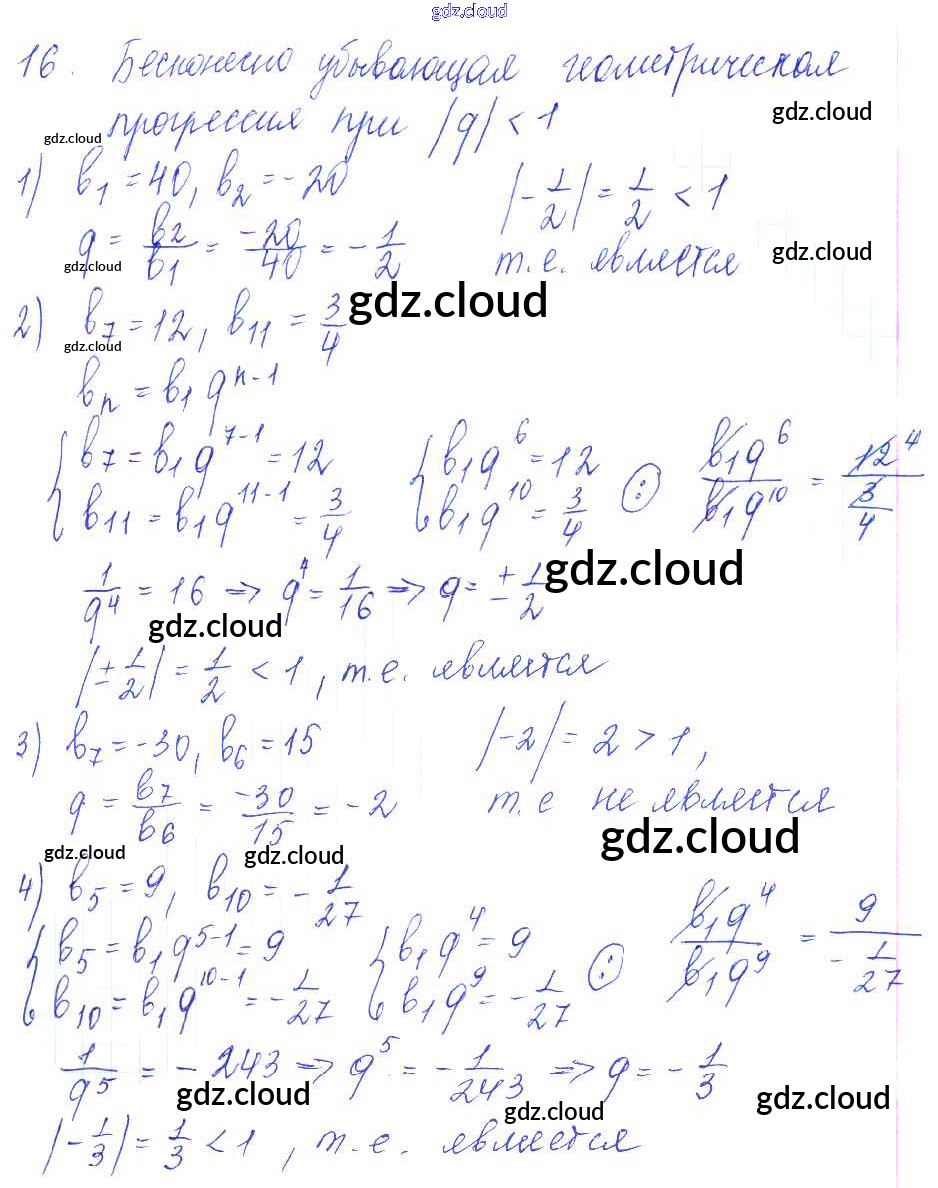 gdz.cloud
16. Бесконечно убывающая геометрическая
gdz.cloud
gdz.cloud прогрессия при |q| < 1
1) b₁ = 40, b₂ = -20 |-1/2| = 1/2 < 1
q = b₂/b₁ = -20/40 = -1/2 т.е. является gdz.cloud
gdz.cloud
2) b₇ = 12, b₁₁ = 3/4 gdz.cloud
gdz.cloud
bₙ = b₁qⁿ⁻¹
{b₇ = b₁q⁷⁻¹ = 12 {b₁q⁶ = 12
b₁₁ = b₁q¹¹⁻¹ = 3/4 b₁q¹⁰ = 3/4 (:) b₁q⁶/b₁q¹⁰ = 12⁴/(3/4)
1/q⁴ = 16 => q⁴ = 1/16 => q = ±1/2 gdz.cloud
gdz.cloud
|±1/2| = 1/2 < 1, т.е. является
3) b₇ = -30, b₆ = 15 |-2| = 2 > 1,
q = b₇/b₆ = -30/15 = -2 т.е не является
gdz.cloud
gdz.cloud gdz.cloud
4) b₅ = 9, b₁₀ = -1/27
{b₅ = b₁q⁵⁻¹ = 9 {b₁q⁴ = 9
b₁₀ = b₁q¹⁰⁻¹ = -1/27 b₁q⁹ = -1/27 (:) b₁q⁴/b₁q⁹ = 9/(-1/27)
1/q⁵ = -243 => q⁵ = -1/243 => q = -1/3
gdz.cloud gdz.cloud gdz.cloud
|-1/3| = 1/3 < 1, т.е. является